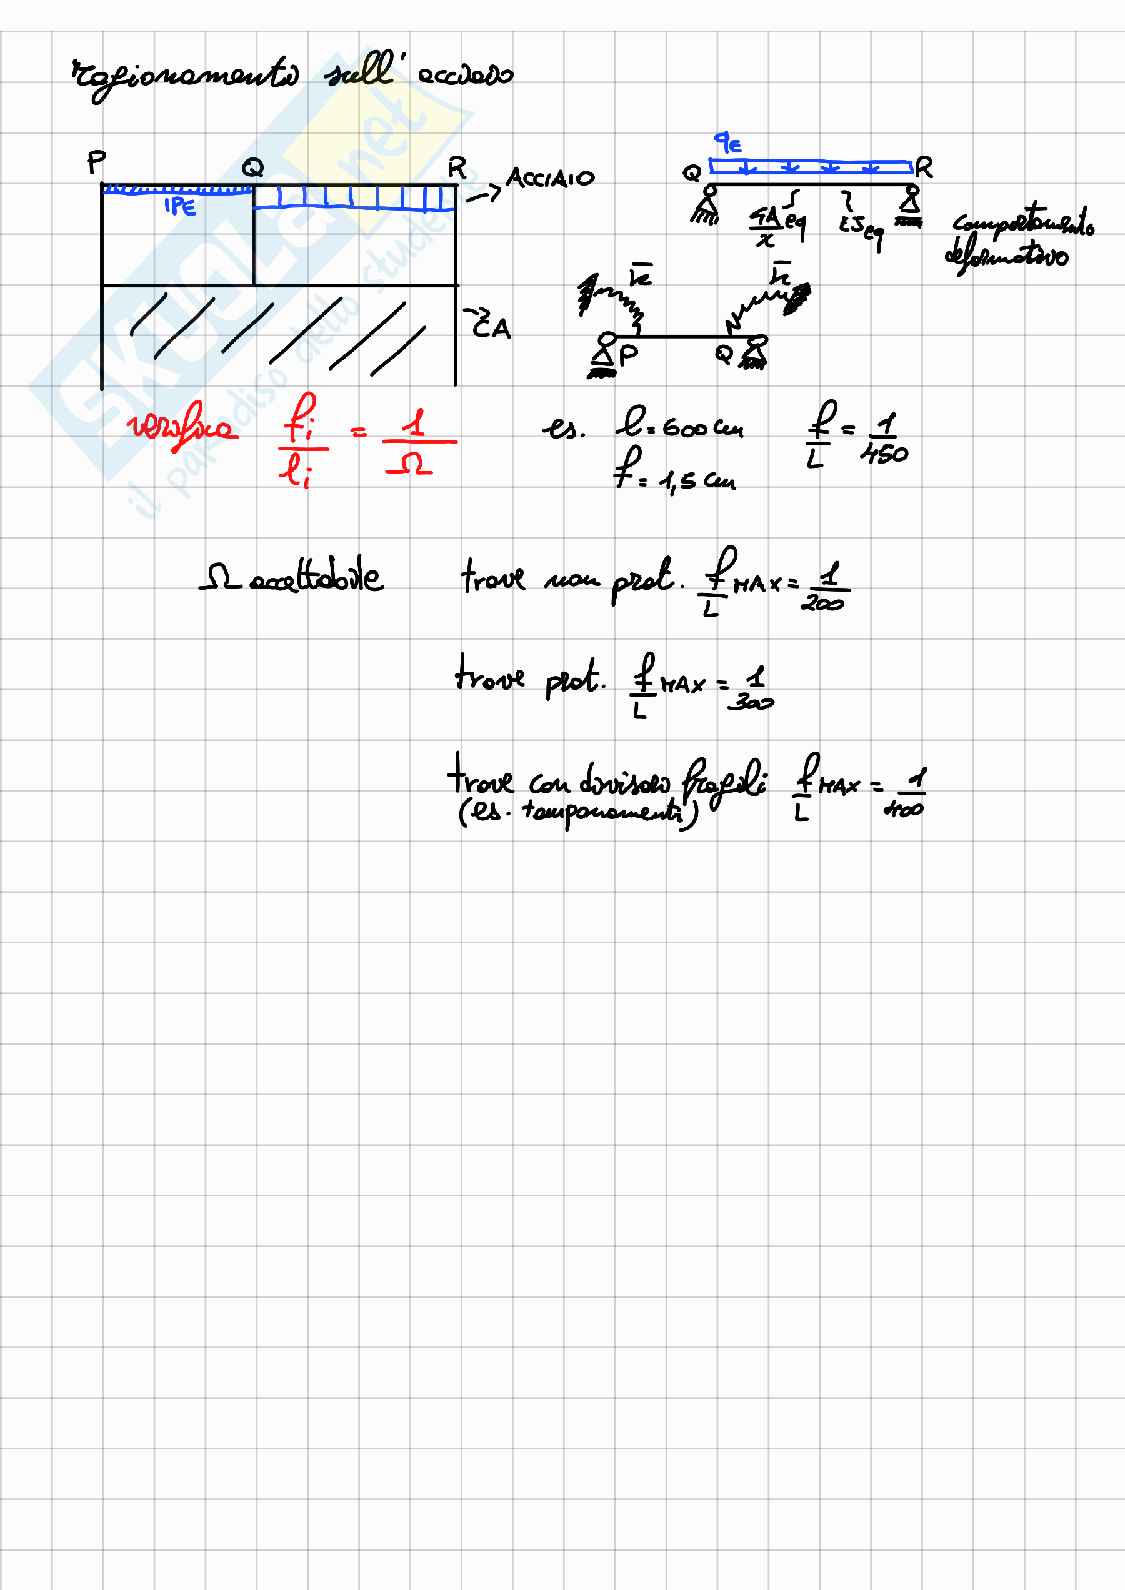 ragionamento sull' acciaio
P Q R → ACCIAIO
IPE
→ CA
qE
Q R
GA/χ eq EJeq
comportamento
deformativo
k̅ k̅
P Q
verifica fi/li = 1/Ω
es. l = 600 cm f/L = 1/450
f = 1,5 cm
Ω accettabile trave non prat. f/L MAX = 1/200
trave prat. f/L MAX = 1/300
trave con divisori fragili f/L MAX = 1/400
(es. tamponamenti)
SKUOLA.net
il paradiso dello studente